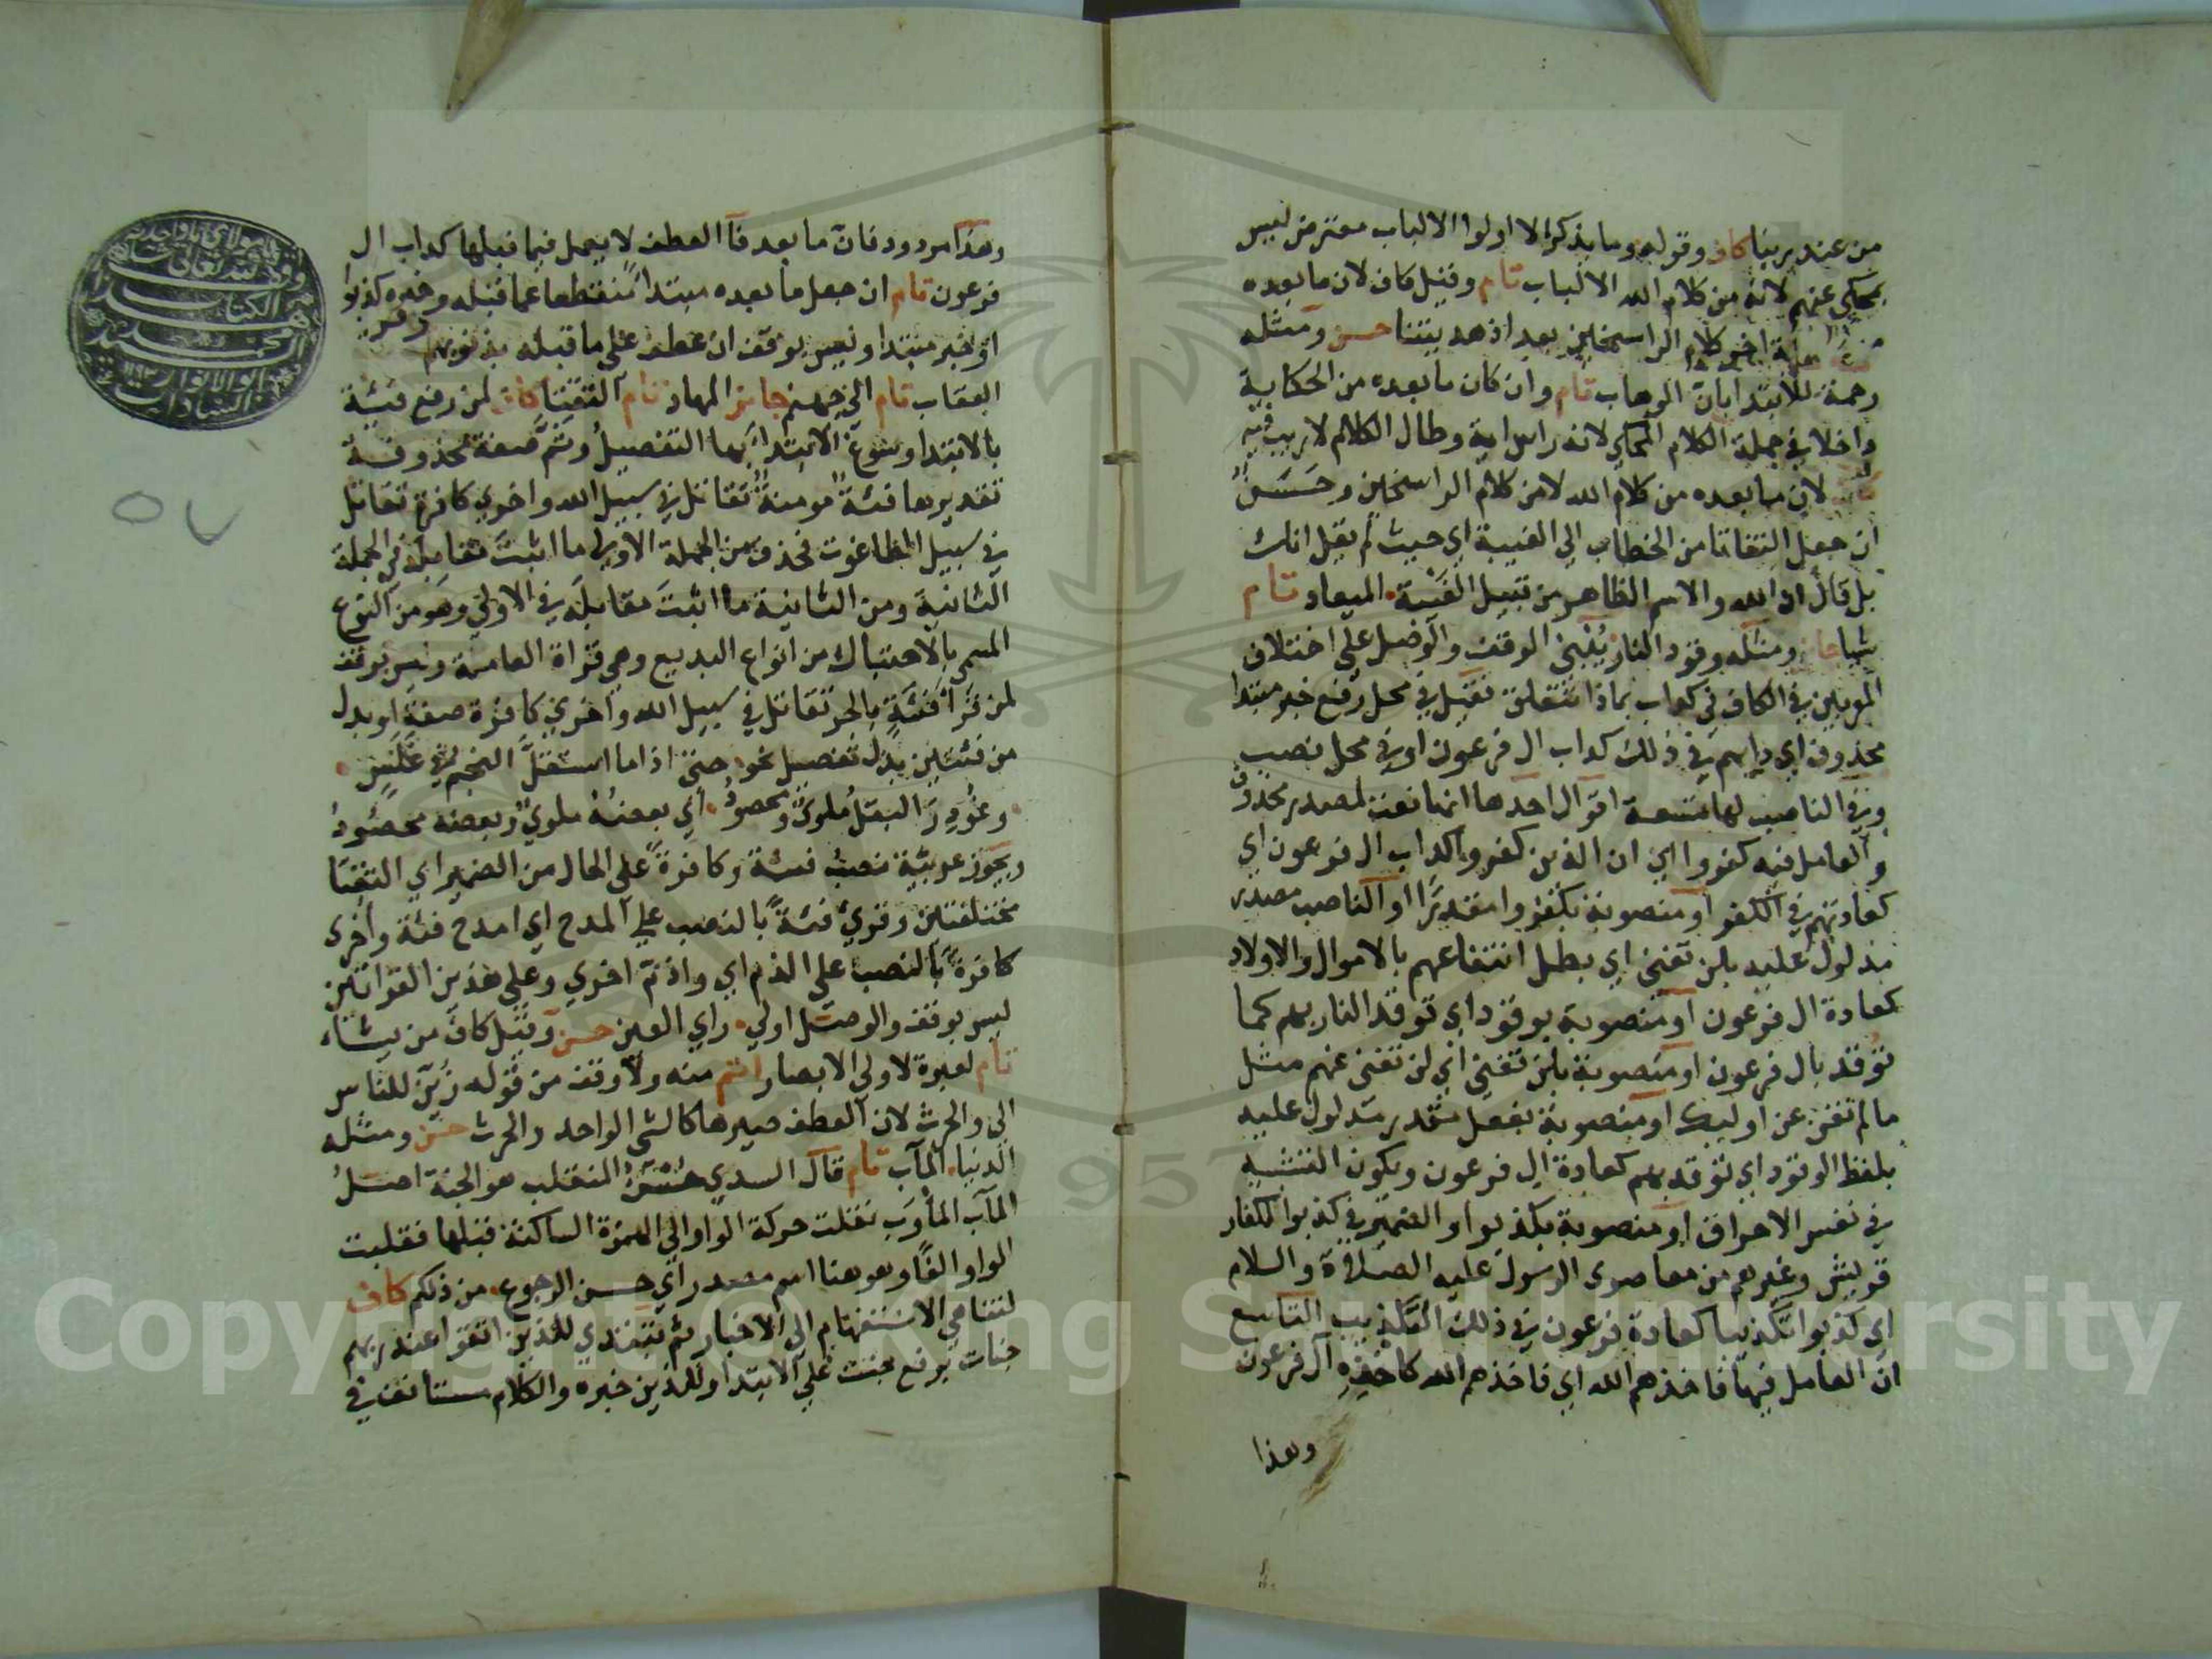 من عند ربنا كاف وقوله وما يذكر الا اولوا الالباب معترض ليس
بمحكي عنهم لانه من كلام الله الالباب تام وقيل كاف لان ما بعده
اخر كلام الراسخين بعد اذ هديتنا حسن ومثله
رحمة للابتدا بان الوهاب تام وان كان ما بعده من الحكاية
داخلا في جملة الكلام المحكي لانه راس اية وطال الكلام لا ريب فيه
لان ما بعده من كلام الله لا من كلام الراسخين وحسن
ان جعل التفاتا من الخطاب الي الغيبة اي حيث لم يقل انك
بل قال ان الله والاسم الظاهر من قبيل الغيبة الميعاد تام
شيا جائز ومثله وقود النار يُبنى الوقف والوصل علي اختلاف
المعربين في الكاف في كداب بماذا تتعلق فقيل في محل رفع خبر مبتدا
محذوف اي دابهم في ذلك كداب ال فرعون او في محل نصب
وفي الناصب لها تسعة اقوال احدها انها نعت لمصدر محذوف
والعامل فيه كفروا اي ان الذين كفروا كداب ال فرعون اي
كعادتهم في الكفر او منصوبة بكفروا مقدرا او الناصب مصدر
مدلول عليه بلن تغني اي بطل انتفاعهم بالاموال والاولاد
كعادة ال فرعون او منصوبة بوقود اي توقد النار بهم كما
توقد بال فرعون او منصوبة بلن تغني اي لن تغني عنهم مثل
ما لم تغن عن اوليك او منصوبة بفعل مقدر مدلول عليه
بلفظ الوقود اي توقد بهم كعادة ال فرعون ويكون التشبيه
في نفس الاحراق او منصوبة بكذبوا والضمير في كذبوا لكفار
قريش وغيرهم من معاصري الرسول عليه الصلاة والسلام
اي كذبوا تكذيبا كعادة فرعون في ذلك التكذيب التاسع
ان العامل فيها فاخذهم الله اي فاخذهم الله كاخذه آل فرعون
وهذا
وهذا مردود فان ما بعد فآ العطف لا يعمل فيما قبلها كداب ال
فرعون تام ان جعل ما بعده مبتدا منقطعا عما قبله وخبره كذبوا
او خبر مبتدا وليس بوقف ان عطف على ما قبله بذنوبهم
العقاب تام الي جهنم جائز المهاد تام التقتا كاف لمن رفع فئة
بالابتدا وسوغ الابتدا بها التفصيل وثم صفة محذوفة
تقديرها فئة مومنة تقاتل في سبيل الله واخري كافرة تقاتل
في سبيل الطاغوت فحذف من الجملة الاولى ما اثبت مقابله في الجملة
الثانية ومن الثانية ما اثبت مقابله في الاولي وهو من النوع
المسمي بالاحتباك من انواع البديع وهي قراة العامة وليس بوقف
لمن قرأ فئة بالجر تقاتل في سبيل الله واخري كافرة صفة او بدل
من فئتين بدل تفصيل نحو حتى اذا ما استقل النجم في غلس
وغودر البقل ملويٌّ ومحصود اي بعضه ملوي وبعضه محصود
ويجوز عربية نصب فئة وكافرة على الحال من الضمير اي التقتا
مختلفتين وقريء فئة بالنصب علي المدح اي امدح فئة واخرى
كافرة بالنصب على الذم اي واذم اخري وعلي هذين القراتين
ليس بوقف والوصل اولي راي العين حسن وقيل كاف من يشاء
تام لعبرة لاولي الابصار اتم منه ولا وقف من قوله زين للناس
الي والحرث لان العطف صيرها كالشي الواحد والحرث حسن ومثله
الدنيا المآب تام قال السدي حسن المنقلب هو الجنة اصل
المآب المأوب نقلت حركة الواو الي الهمزة الساكنة قبلها فقلبت
الواو الفا وهو هنا اسم مصدر اي حسن الرجوع من ذلكم كاف
لتناهي الاستفهام الى الاخبار ثم تبتدي للذين اتقوا عند ربهم
جنات برفع جنت علي الابتدا وللذين خبره والكلام مستانف في
٥٧
Copyright © King Saud University
1957